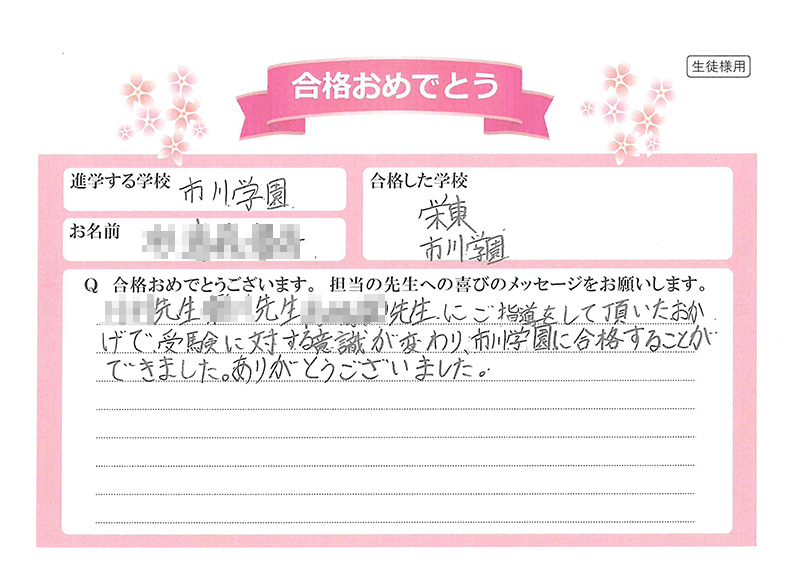 合格おめでとう
生徒様用
進学する学校 市川学園
お名前
合格した学校
栄東
市川学園
Q 合格おめでとうございます。担当の先生への喜びのメッセージをお願いします。
先生 先生 先生にご指導をして頂いたおか
げで受験に対する意識が変わり、市川学園に合格することが
できました。ありがとうございました。